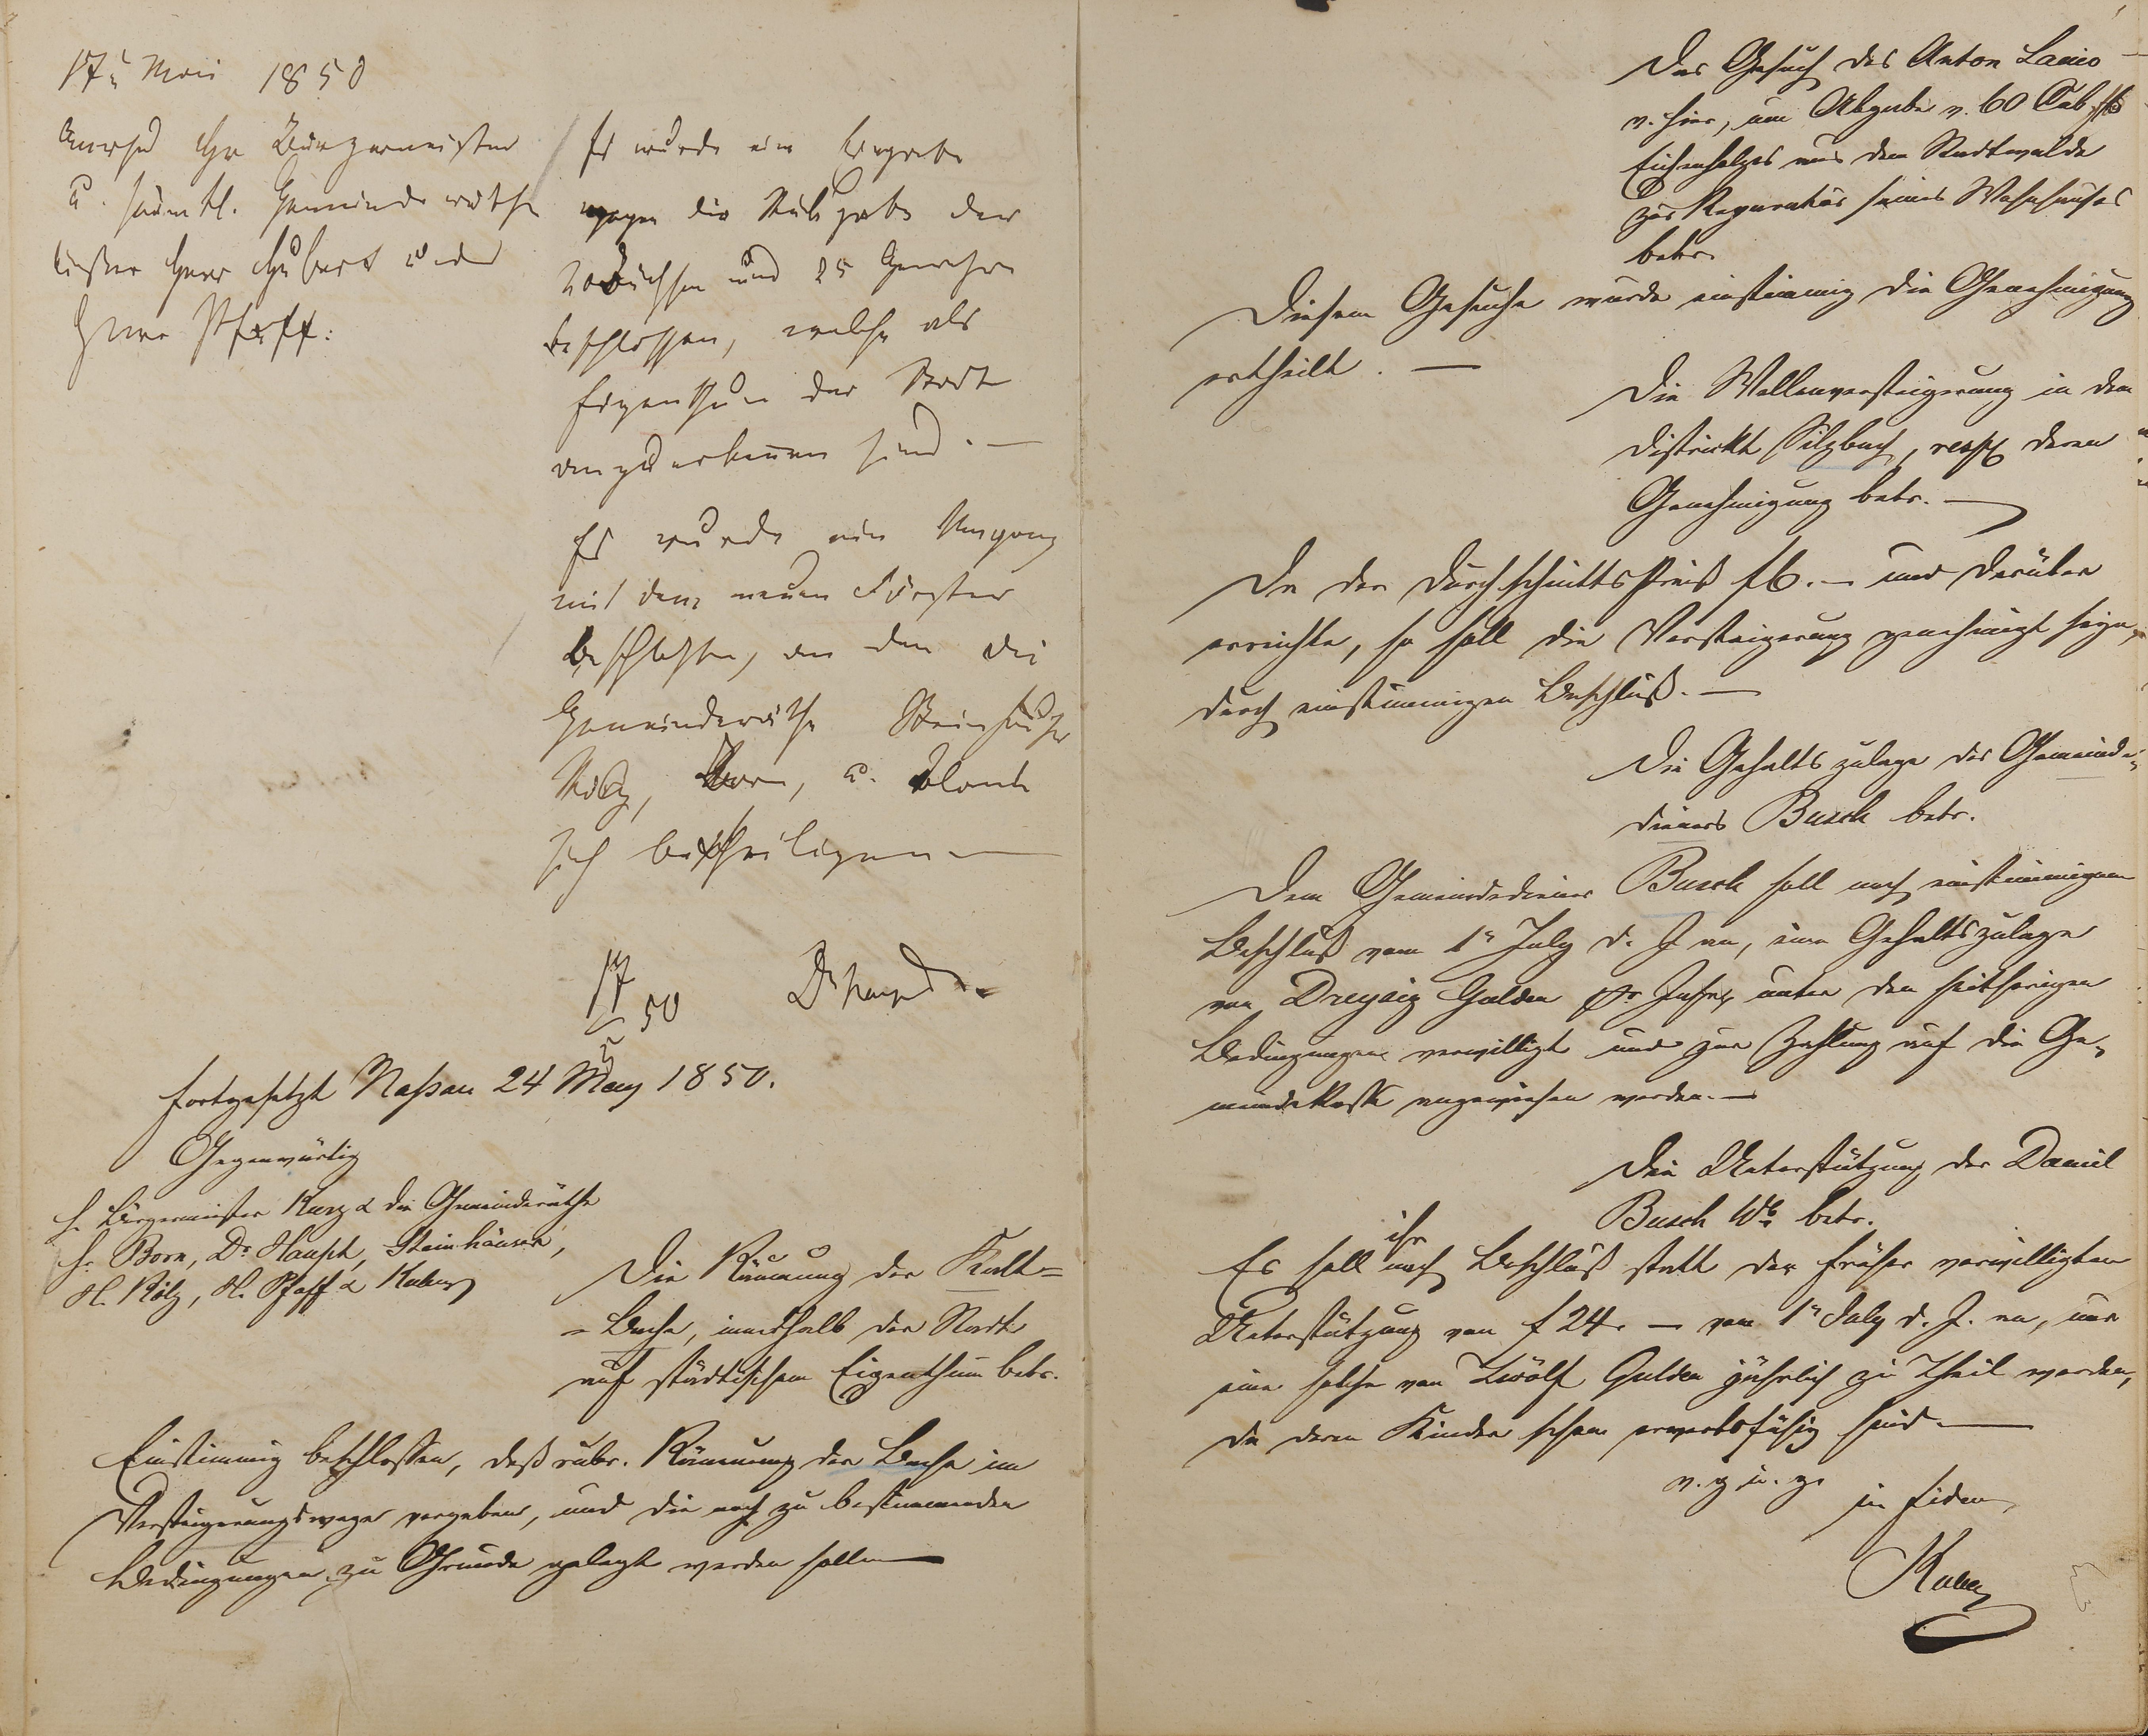 17t Mai 1850
Anwesd Hr Bürgermeister
u. sämtl. Gemeinderäthe
außer Herr Hubert und
Herr Pfaff.
Es wurde eine Eingabe
wegen die Rückgabe der
Büchsen und 25 Gewehre
beschlossen, welche als
Eigenthum der Stadt
anzuerkennen sind. —
Es wurde ein Umgang
mit dem neuen Förster
beschlossen, an dem die
Gemeinderäthe Steinhäuser
Kölz, Born, u.
sich betheiligen —
17/5 50 Dr Haupt
fortgesetzt Naßau 24 May 1850.
Gegenwärtig
H. Bürgermeister Kurz & die Gemeinderäthe
H. Born, Dr Haupt, Steinhäuser,
H. Kölz, H. Pfaff &
Die Räumung der Kalt=
=Bache, innerhalb der Stadt
auf städtischem Eigenthum betr.
Einstimmig beschlossen, daß rubr. Räumung der Bache im
Versteigerungswege vergeben, und die noch zu bestimmenden
Bedingungen zu Grunde gelegt werden sollen —
Das Gesuch des Anton
v. hier, um Abgabe v. 60 Cub.
Eichenholzes aus dem Stadtwalde
zur Reparatur seines Wohnhauses
betr.
Diesem Gesuche wurde einstimmig die Genehmigung
ertheilt. —
Die Wellenversteigerung in dem
Districkte Silzbach, resp deren
Genehmigung betr. —
Da der Durchschnittspreiß f 6. — und darüber
erreichte, so soll die Versteigerung genehmigt seyn,
durch einstimmigen Beschluß. —
Die Gehaltszulage des Gemeinde-
dieners Busch betr.
Dem Gemeindediener Busch soll nach einstimmigem
Beschluß vom 1n July d. J. an, eine Gehaltszulage
von Dreysig Gulden pr Jahr, unter den seitherigen
Bedingungen verwilligt und zur Zahlung auf die Ge-
meindekasse angewiesen werden. —
Die Unterstützung der Daniel
Busch Wb betr.
Es soll ihr nach Beschluß statt der früher verwilligten
Unterstützung von f 24. — vom 1n July d. J. an, nur
eine solche von Zwölf Gulden jährlich zu Theil werden,
da deren Kinder schon erwerbsfähig sind. —
v. g. u. g.
in fidem